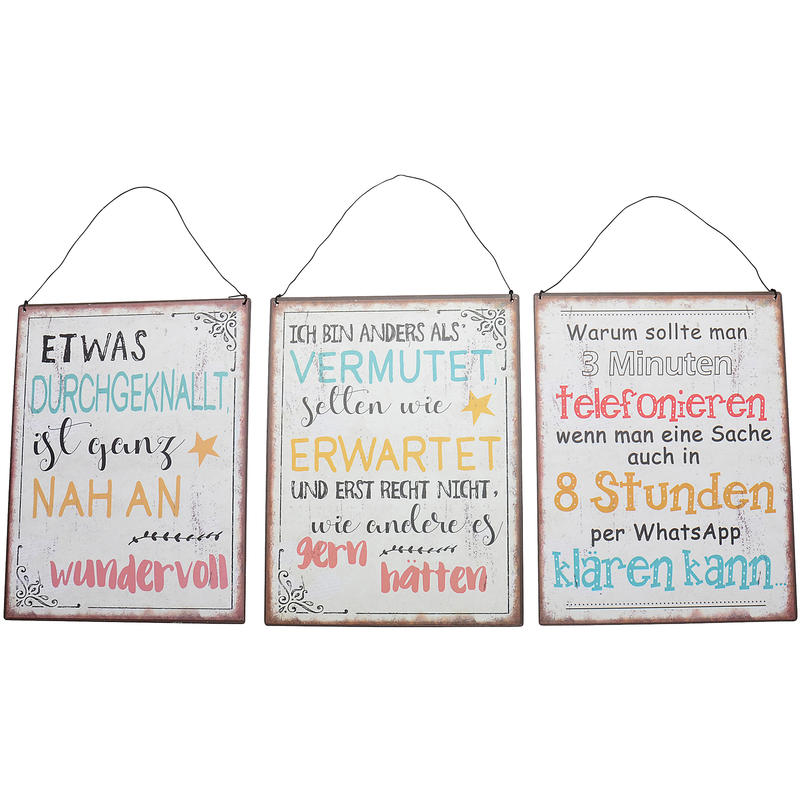 ETWAS
DURCHGEKNALLT,
ist ganz
NAH AN
wundervoll
ICH BIN ANDERS ALS'
VERMUTET,
selten wie
ERWARTET
UND ERST RECHT NICHT,
wie andere es
gern
hätten
Warum sollte man
3 Minuten
telefonieren
wenn man eine Sache
auch in
8 Stunden
per WhatsApp
klären kann...